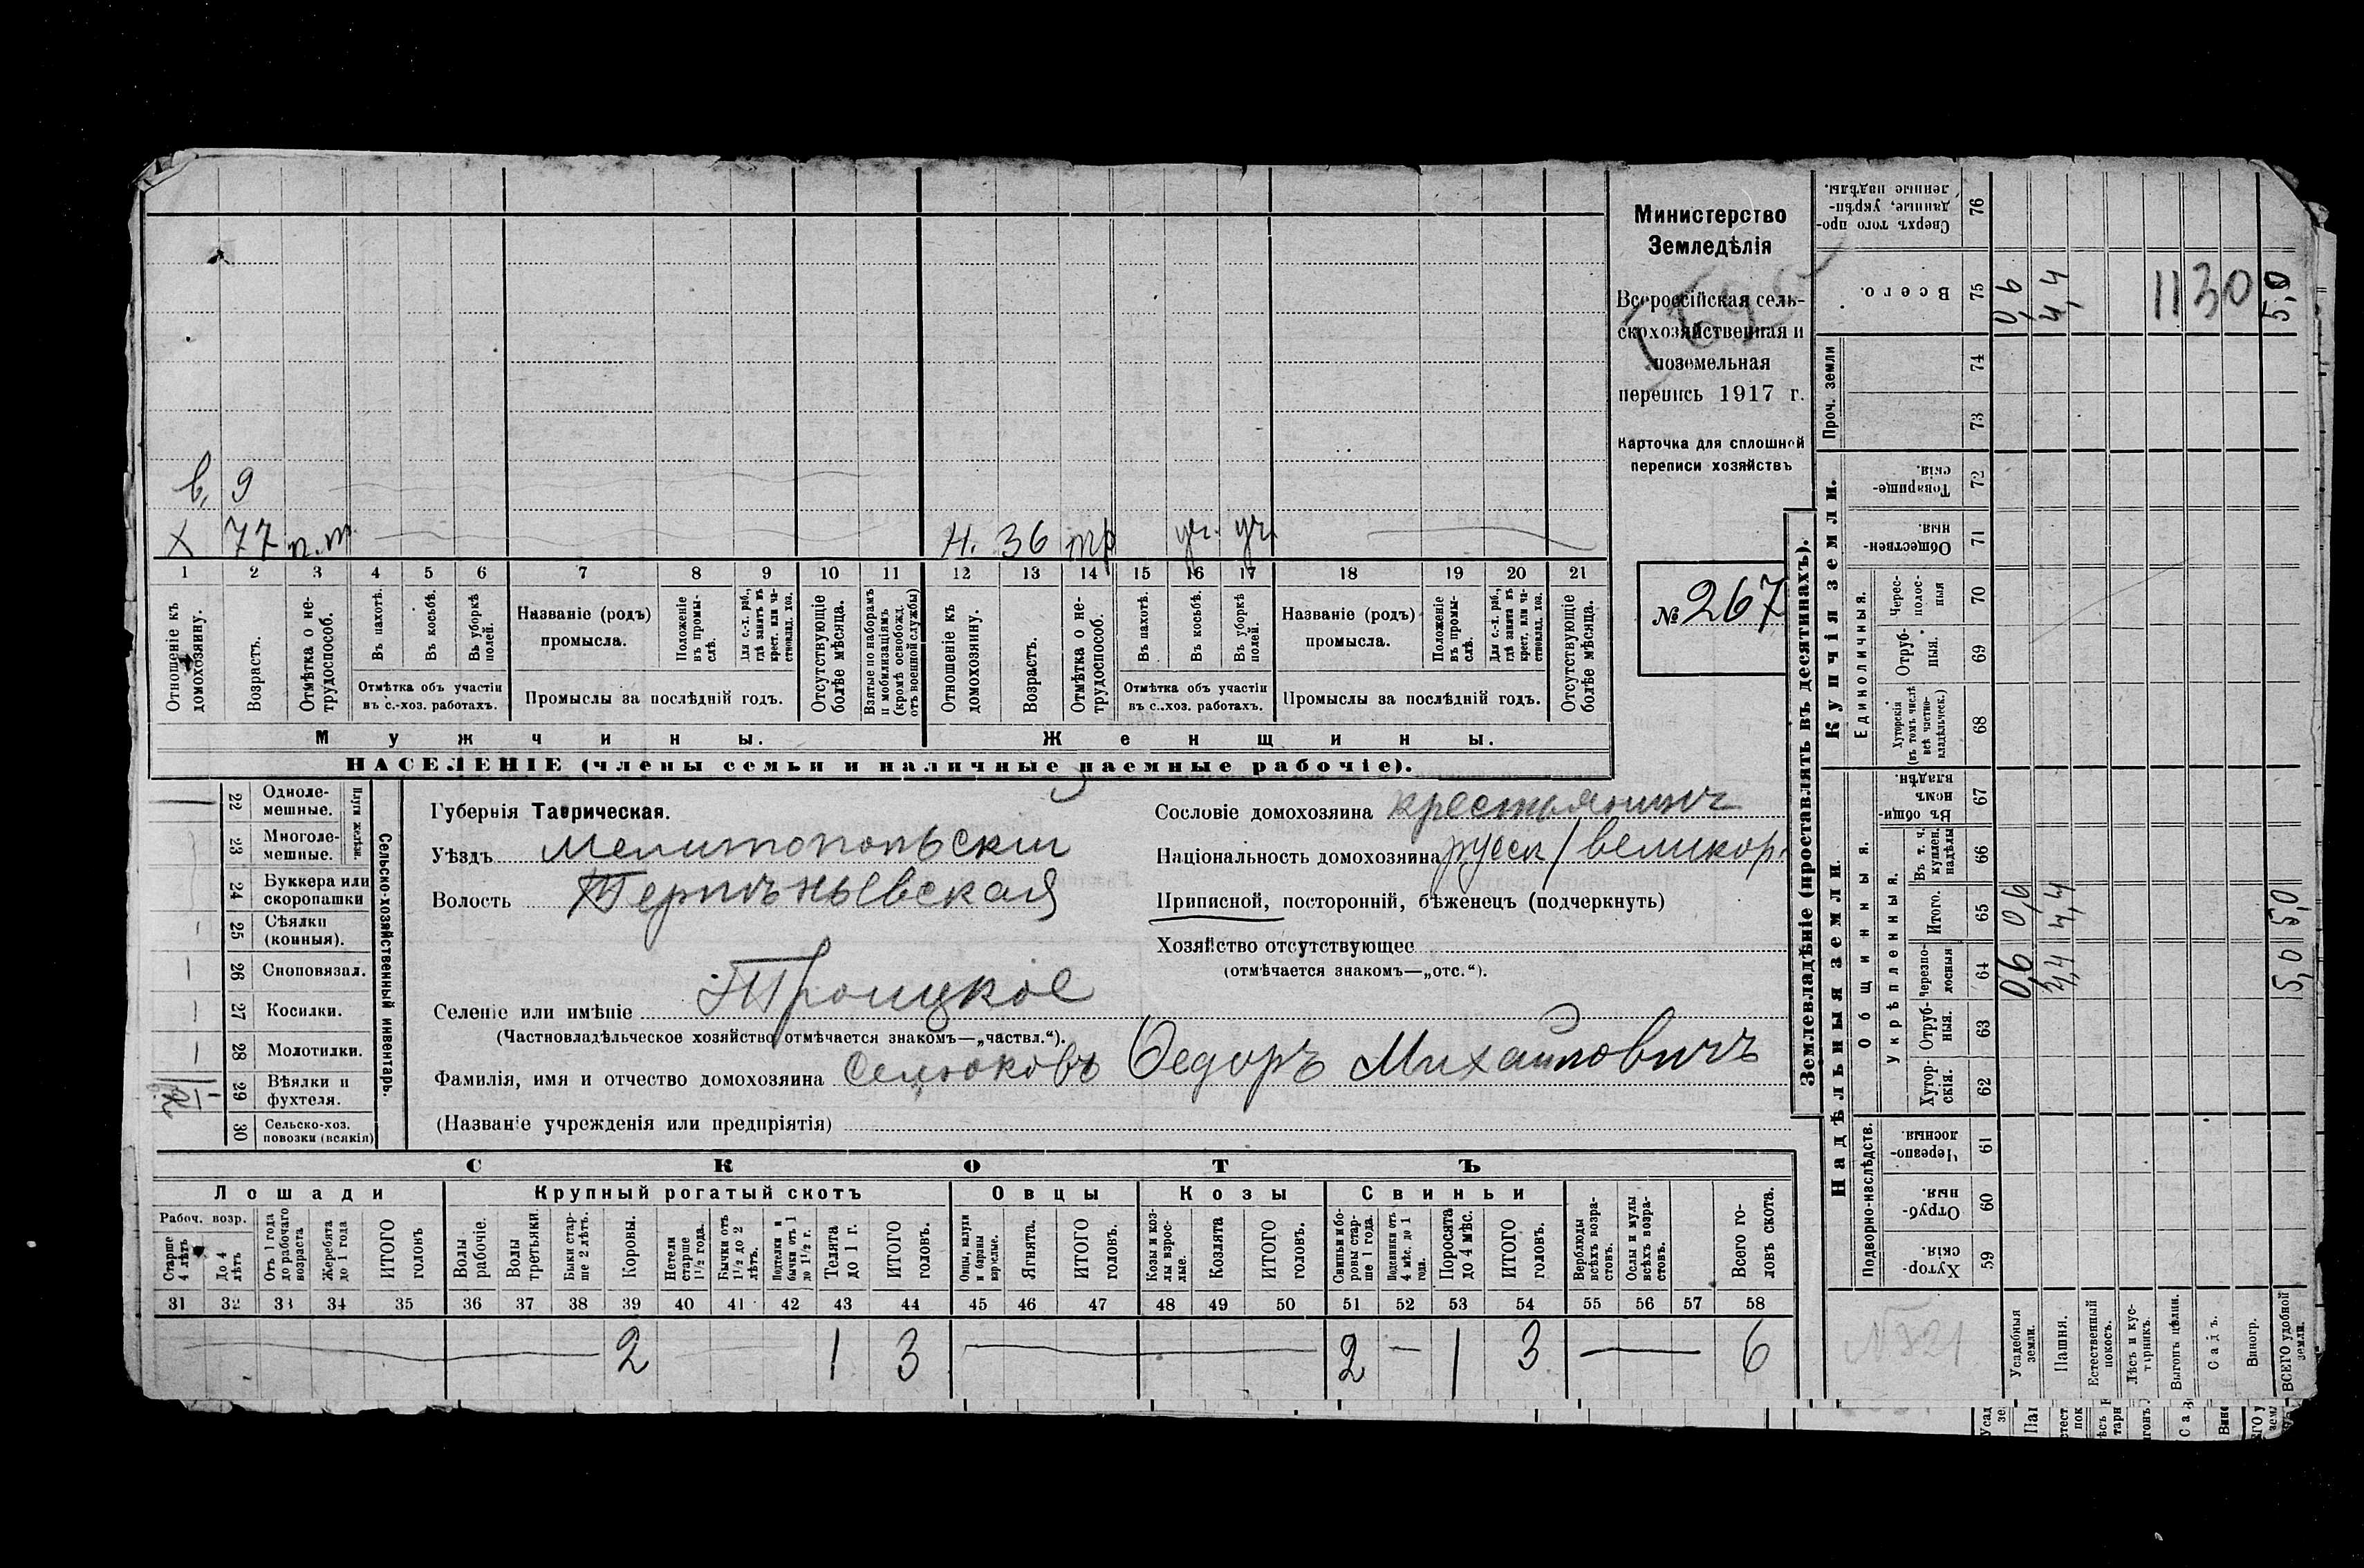 в. 9
х 77 п.т. н. 36 тр уч. уч.
1 2 3 4 5 6 7 8 9 10 11 12 13 14 15 16 17 18 19 20 21
Отношеніе къ домохозяину.
Возрастъ.
Отмѣтка о нетрудоспособ.
Въ пахотѣ.
Въ косьбѣ.
Въ уборкѣ полей.
Отмѣтка объ участіи въ с.-хоз. работахъ.
Названіе (родъ) промысла.
Положеніе въ промыслѣ.
Для с.-х. раб., гдѣ занятъ въ крест. или частновлад. хоз.
Промыслы за послѣдній годъ.
Отсутствующіе болѣе мѣсяца.
Взятые по наборамъ и мобилизаціямъ (кромѣ освобожд. отъ военной службы)
Отношеніе къ домохозяину.
Возрастъ.
Отмѣтка о нетрудоспособ.
Въ пахотѣ.
Въ косьбѣ.
Въ уборкѣ полей.
Отмѣтка объ участіи въ с.-хоз. работахъ.
Названіе (родъ) промысла.
Положеніе въ промыслѣ.
Для с.-х. раб., гдѣ занята въ крест. или частновлад. хоз.
Промыслы за послѣдній годъ.
Отсутствующіе болѣе мѣсяца.
Мужчины. Женщины.
НАСЕЛЕНІЕ (члены семьи и наличные наемные рабочіе).
Министерство
Земледѣлія
Всероссійская сель-
скохозяйственная и
поземельная
перепись 1917 г.
Карточка для сплошной
переписи хозяйствъ
№ 267
22 Одноле-мешные.
23 Многоле-мешные.
24 Буккера или скоропашки
25 Сѣялки (конныя).
26 Сноповязал.
27 Косилки.
28 Молотилки.
29 Вѣялки и фухтеля.
30 Сельско-хоз. повозки (всякія)
Плуги желѣзн.
Сельско-хозяйственный инвентарь.
Губернія Таврическая.
Уѣздъ Мелитопольскій
Волость
Селеніе или имѣніе Троицкое
(Частновладѣльческое хозяйство отмѣчается знакомъ—„частвл.“).
Фамилія, имя и отчество домохозяина Селюковъ Ѳедоръ Михайловичъ
(Названіе учрежденія или предпріятія)
Сословіе домохозяина крестьянинъ
Національность домохозяина русск/великор.
Приписной, посторонній, бѣженецъ (подчеркнуть)
Хозяйство отсутствующее
(отмѣчается знакомъ—„отс.“).
СКОТЪ
Лошади Крупный рогатый скотъ Овцы Козы Свиньи
Рабоч. возр.
Старше 4 лѣтъ
До 4 лѣтъ
Отъ 1 года до рабочаго возраста
Жеребята до 1 года
ИТОГО головъ
Волы рабочіе.
Волы третьяки.
Быки старше 2 лѣтъ.
Коровы.
Нетели старше 1½ года.
Бычки отъ 1½ до 2 лѣтъ.
Подтелки и бычки отъ 1 до 1½ г.
Телята до 1 г.
ИТОГО головъ.
Овцы, валухи и бараны взрослые.
Ягнята.
ИТОГО головъ.
Козы и козлы взрослые.
Козлята
ИТОГО головъ.
Свиньи и боровы старше 1 года.
Подсвинки отъ 4 мѣс. до 1 года.
Поросята до 4 мѣс.
ИТОГО головъ.
Верблюды всѣхъ возрастовъ.
Ослы и мулы всѣхъ возрастовъ.
Всего головъ скота.
31 32 33 34 35 36 37 38 39 40 41 42 43 44 45 46 47 48 49 50 51 52 53 54 55 56 57 58
2 1 3 2 — 1 3 6
Землевладѣніе (проставлять въ десятинахъ).
Надѣльныя земли. Купчія земли. Проч. земли
Подворно-наслѣдств.
Общинныя.
Укрѣпленныя.
Единоличныя.
Хуторскія. 59
Отрубныя. 60
Черезполосныя. 61
Хуторскія. 62
Отрубныя. 63
Черезполосныя 64
Итого. 65
Въ т. ч. куплен. надѣлы 66
Въ общинномъ владѣн. 67
Хуторскія (въ томъ числѣ всѣ частновладѣльческ.) 68
Отрубныя. 69
Черезполосныя 70
Общественныя. 71
Товарищескія. 72
73
74
Всего. 75
Сверхъ того проданные, укрѣпленные надѣлы. 76
Усадебныя земли. 0,6 0,6 0,6
Пашня. 4,4 4,4 4,4
Естественный покосъ.
Лѣсъ и кустарникъ.
Выгонъ цѣлин.
Садъ.
Виногр.
ВСЕГО удобной земли. 5,0 5,0 5,0
1130